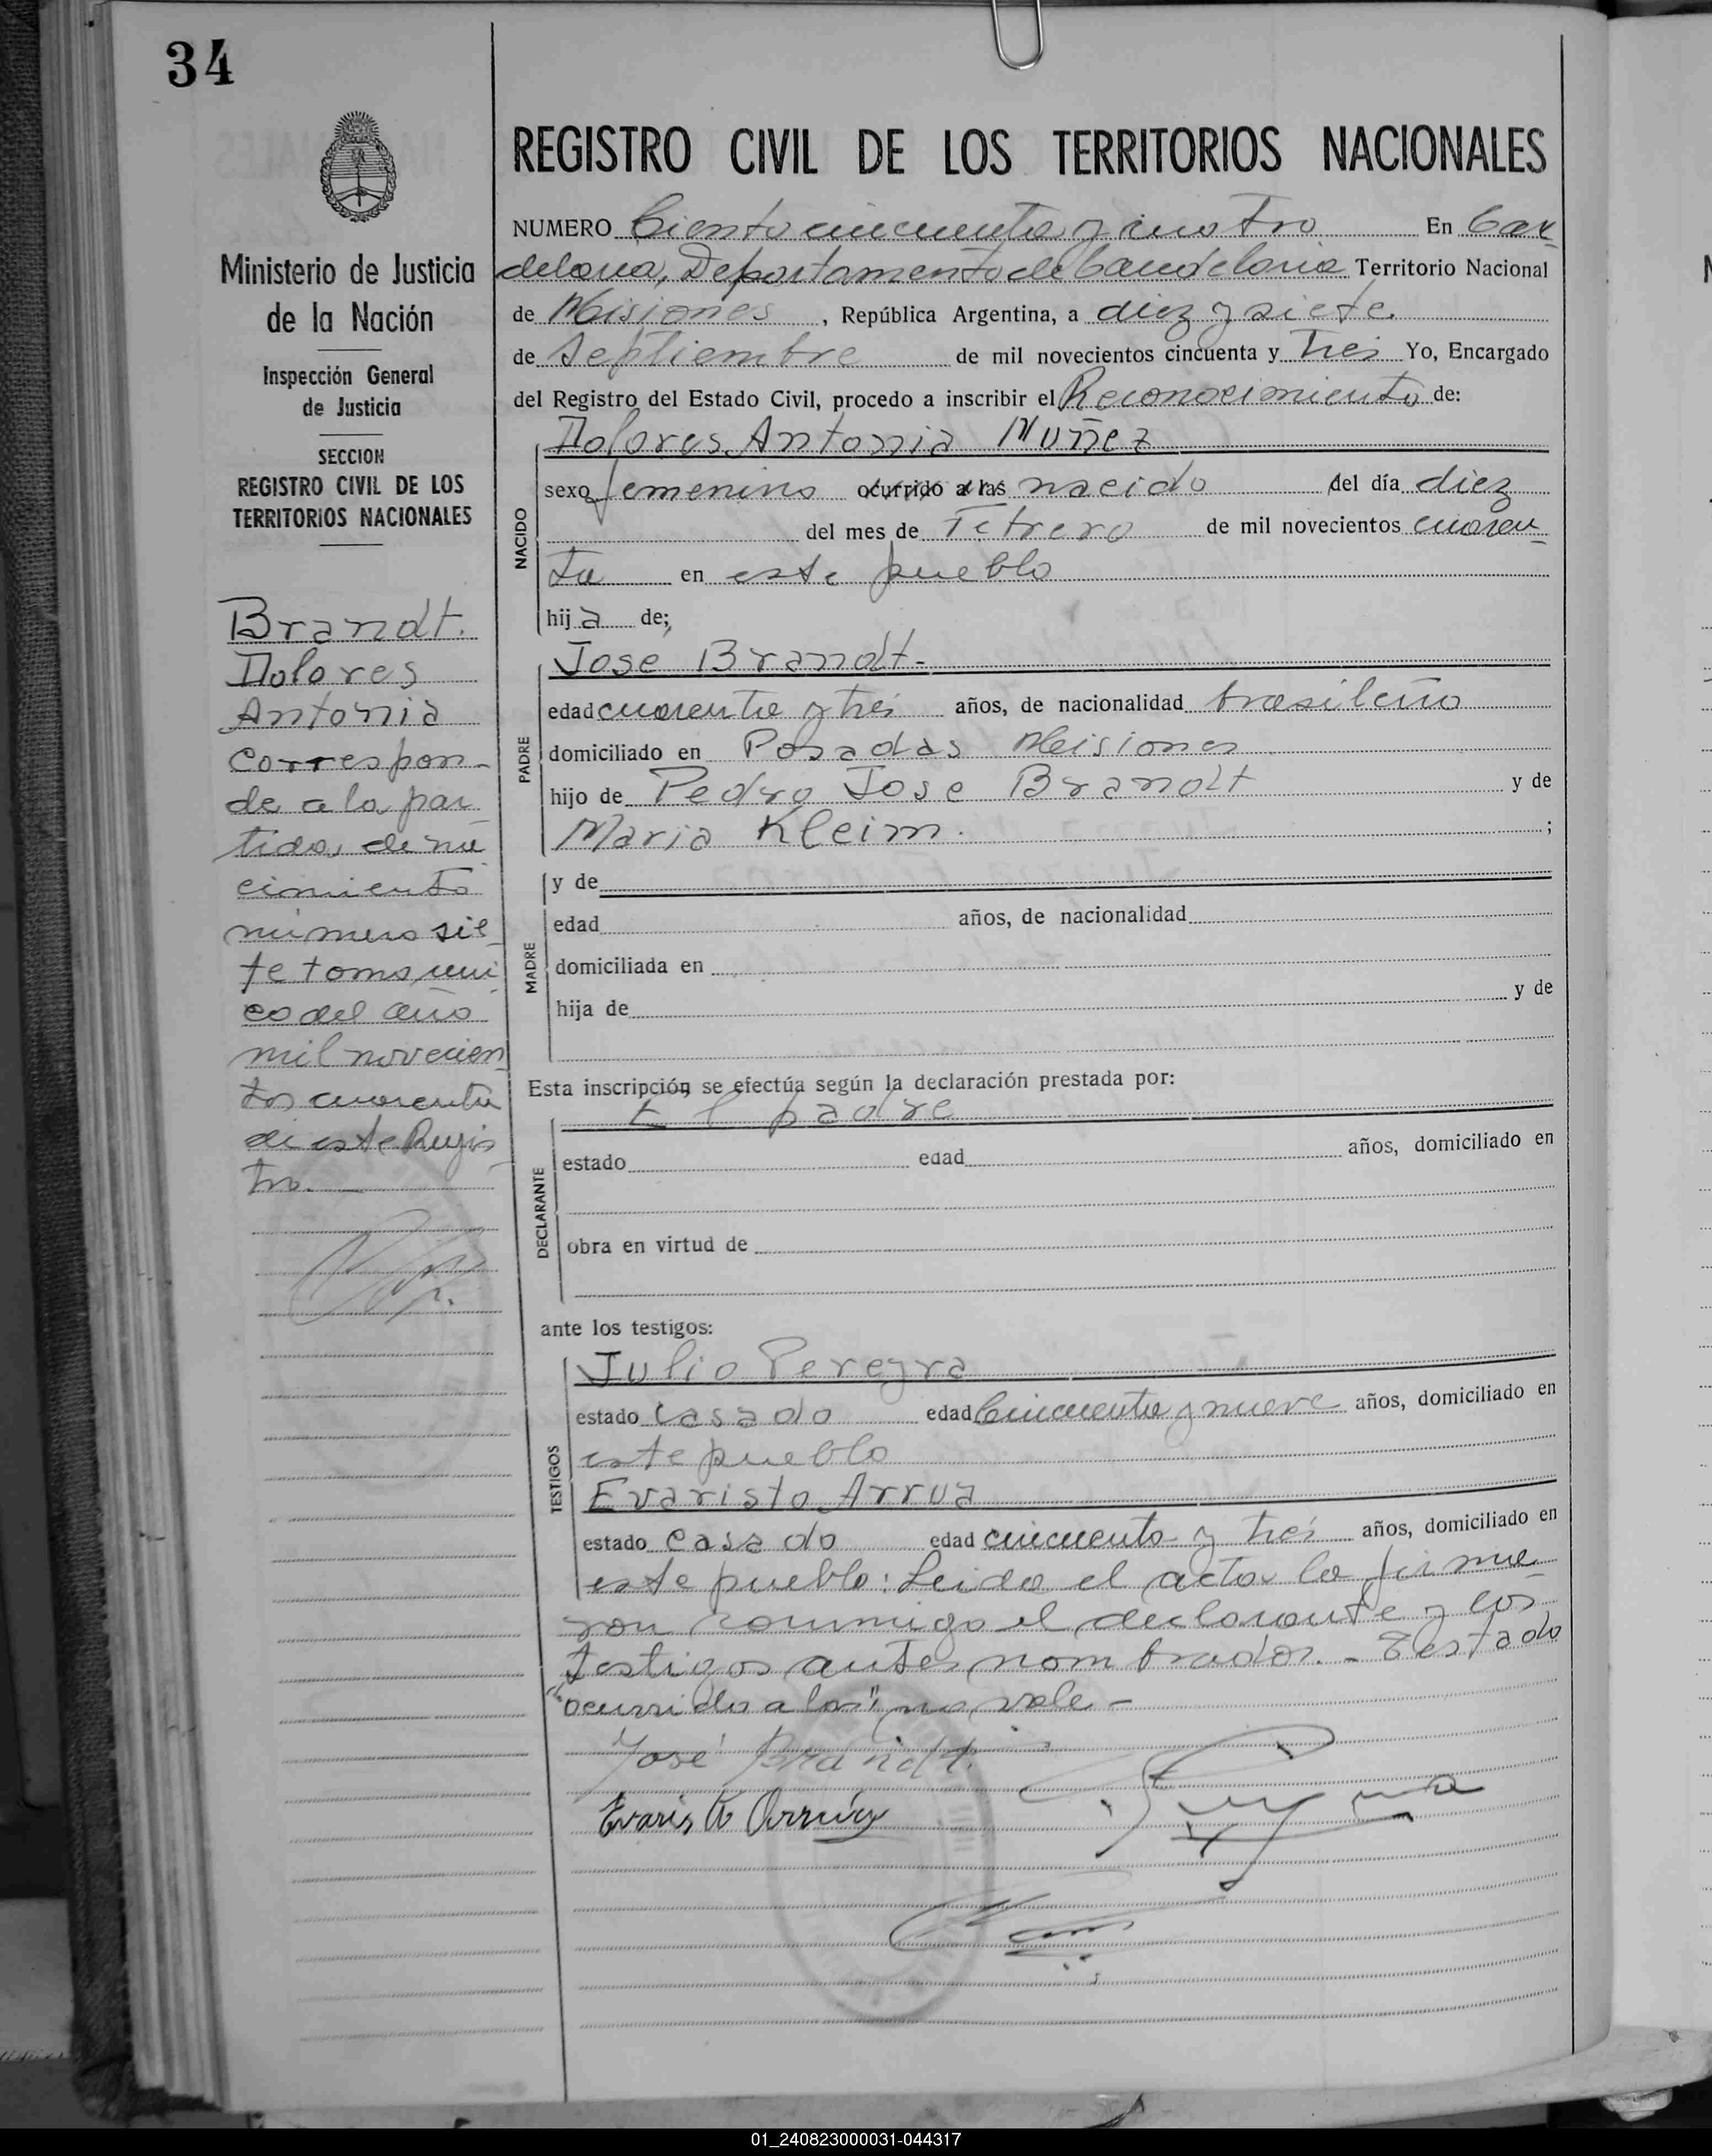 34
REGISTRO CIVIL DE LOS TERRITORIOS NACIONALES
Ministerio de Justicia
de la Nación
Inspección General
de Justicia
SECCION
REGISTRO CIVIL DE LOS
TERRITORIOS NACIONALES
Brandt.
Dolores
Antonia
Correspon-
de a la par
tida de na
cimiento
número sie
te tomo úni
co del año
mil novecien
tos cuarenta
de este Regis
tro.
NUMERO Ciento cincuenta y cuatro En Can
delaria, Departamento de Candelaria Territorio Nacional
de Misiones, República Argentina, a diez y siete
de Septiembre de mil novecientos cincuenta y tres Yo, Encargado
del Registro del Estado Civil, procedo a inscribir el Reconocimiento de:
Dolores Antonia Nuñez
NACIDO
sexo femenino ocurrido a las nacido del día diez
del mes de Febrero de mil novecientos cuaren
ta en este pueblo
hija de;
Jose Brandt-
PADRE
edad cuarenta y tres años, de nacionalidad brasileño
domiciliado en Posadas Misiones
hijo de Pedro Jose Brandt y de
Maria Kleim. ;
y de
MADRE
edad años, de nacionalidad
domiciliada en
hija de y de
Esta inscripción se efectúa según la declaración prestada por:
El padre
DECLARANTE
estado edad años, domiciliado en
obra en virtud de
ante los testigos:
Julio Pereyra
TESTIGOS
estado casado edad Cincuenta y nueve años, domiciliado en
este pueblo
Evaristo Arrua
estado casado edad cincuenta y tres años, domiciliado en
este pueblo: Leida el acta la firma
ron conmigo el declarante y los
testigos antes nombrados. - Testado
"ocurrido a las" no vale -
José Brandt.
Evaristo Arrúa
01_240823000031-044317